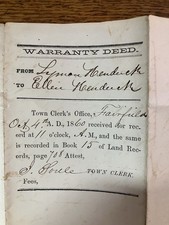 WARRANTY DEED.
FROM Lyman Hendrick
TO Ellen Hendrick
Town Clerk's Office, Fairfield
Oct, 4th A. D., 1860 received for rec-
ord at 11 o'clock, A. M., and the same
is recorded in Book 15 of Land Rec-
ords, page 708 Attest,
S. Soule TOWN CLERK.
Fees,